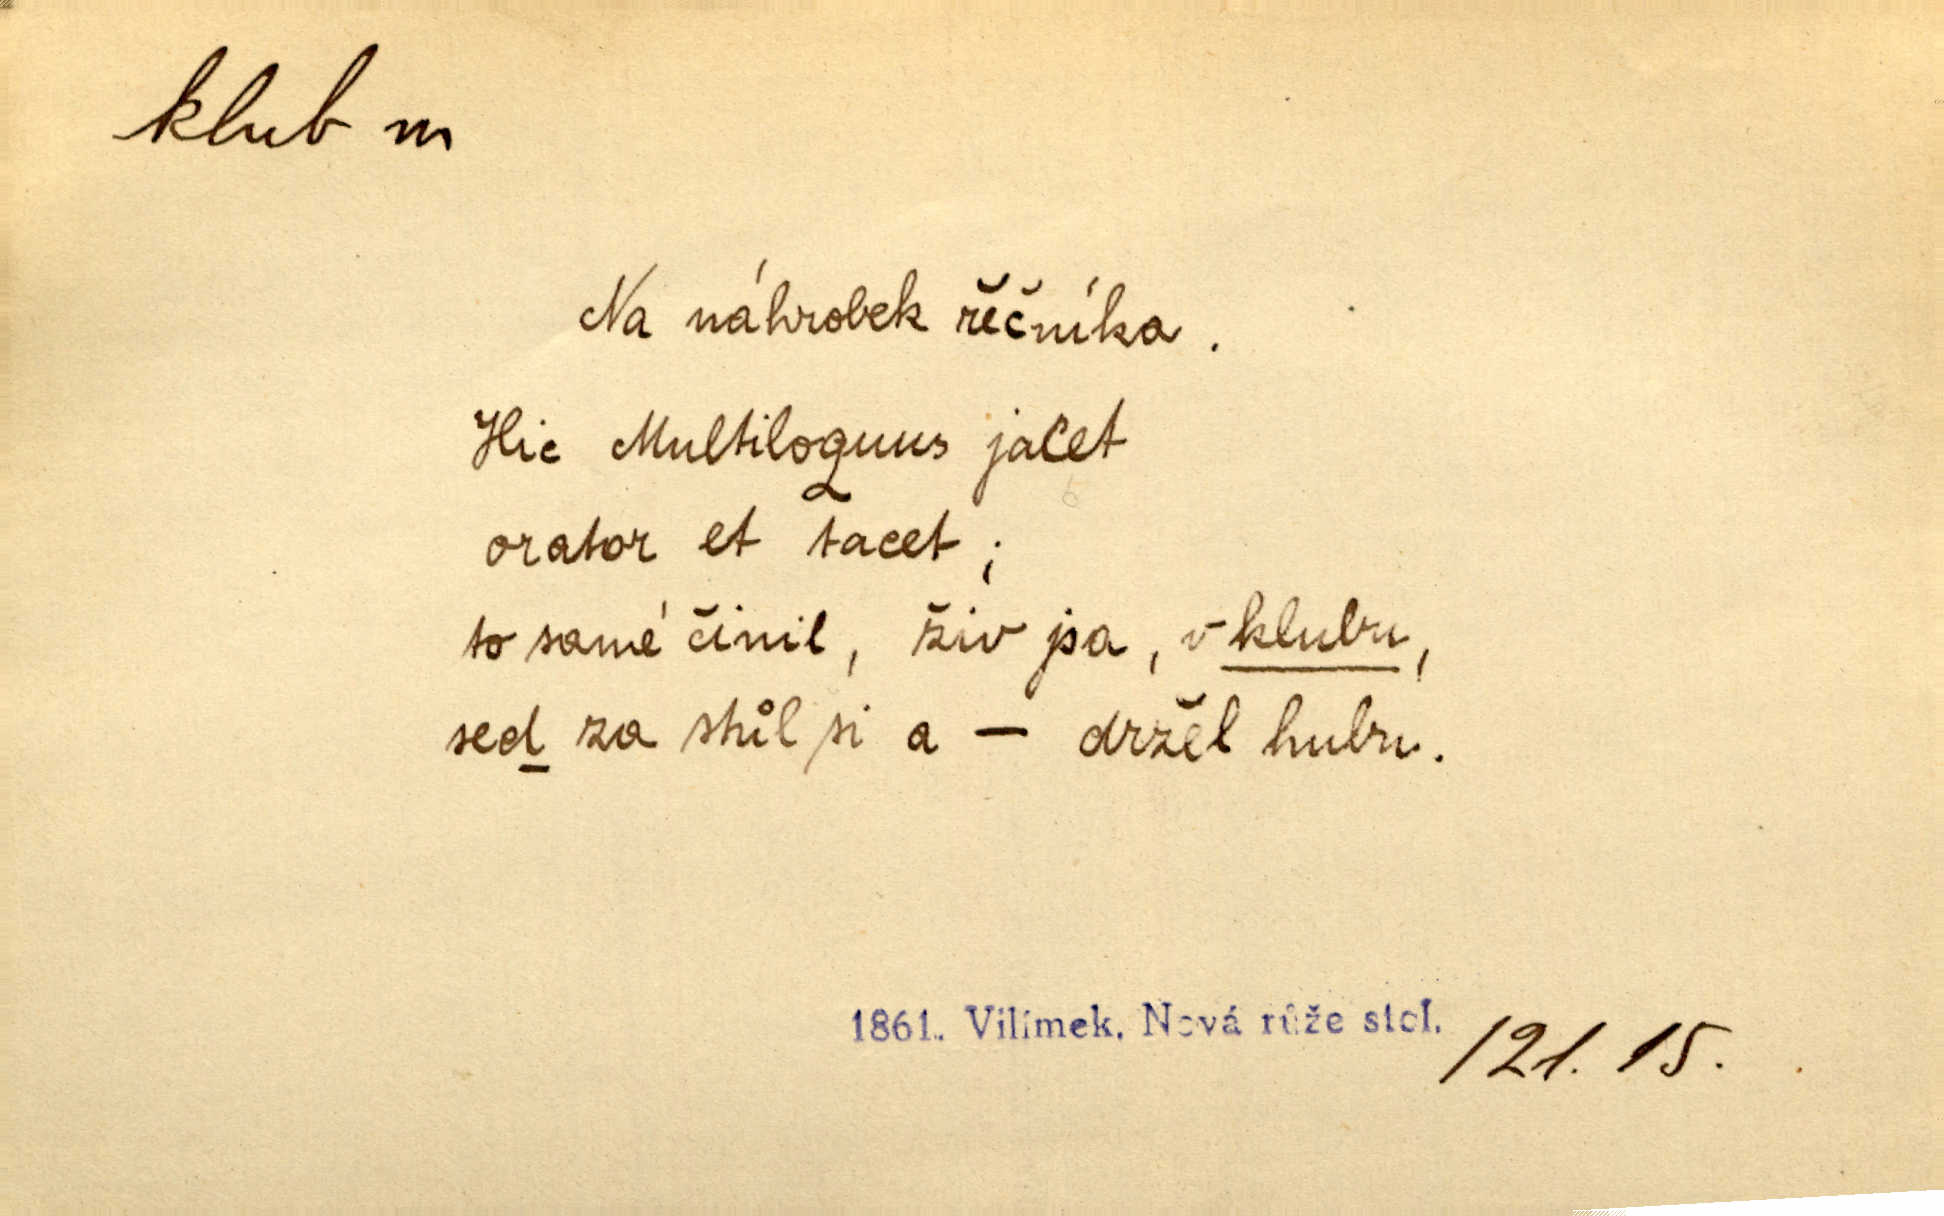 klub m
Na náhrobek řěčníka.
Hic Multiloquus jacet
orator et tacet;
to samé činil, živ jsa, v klubu,
sed za stůl si a — držel hubu.
1861. Vilímek. Nová růže stol. 121. 15.